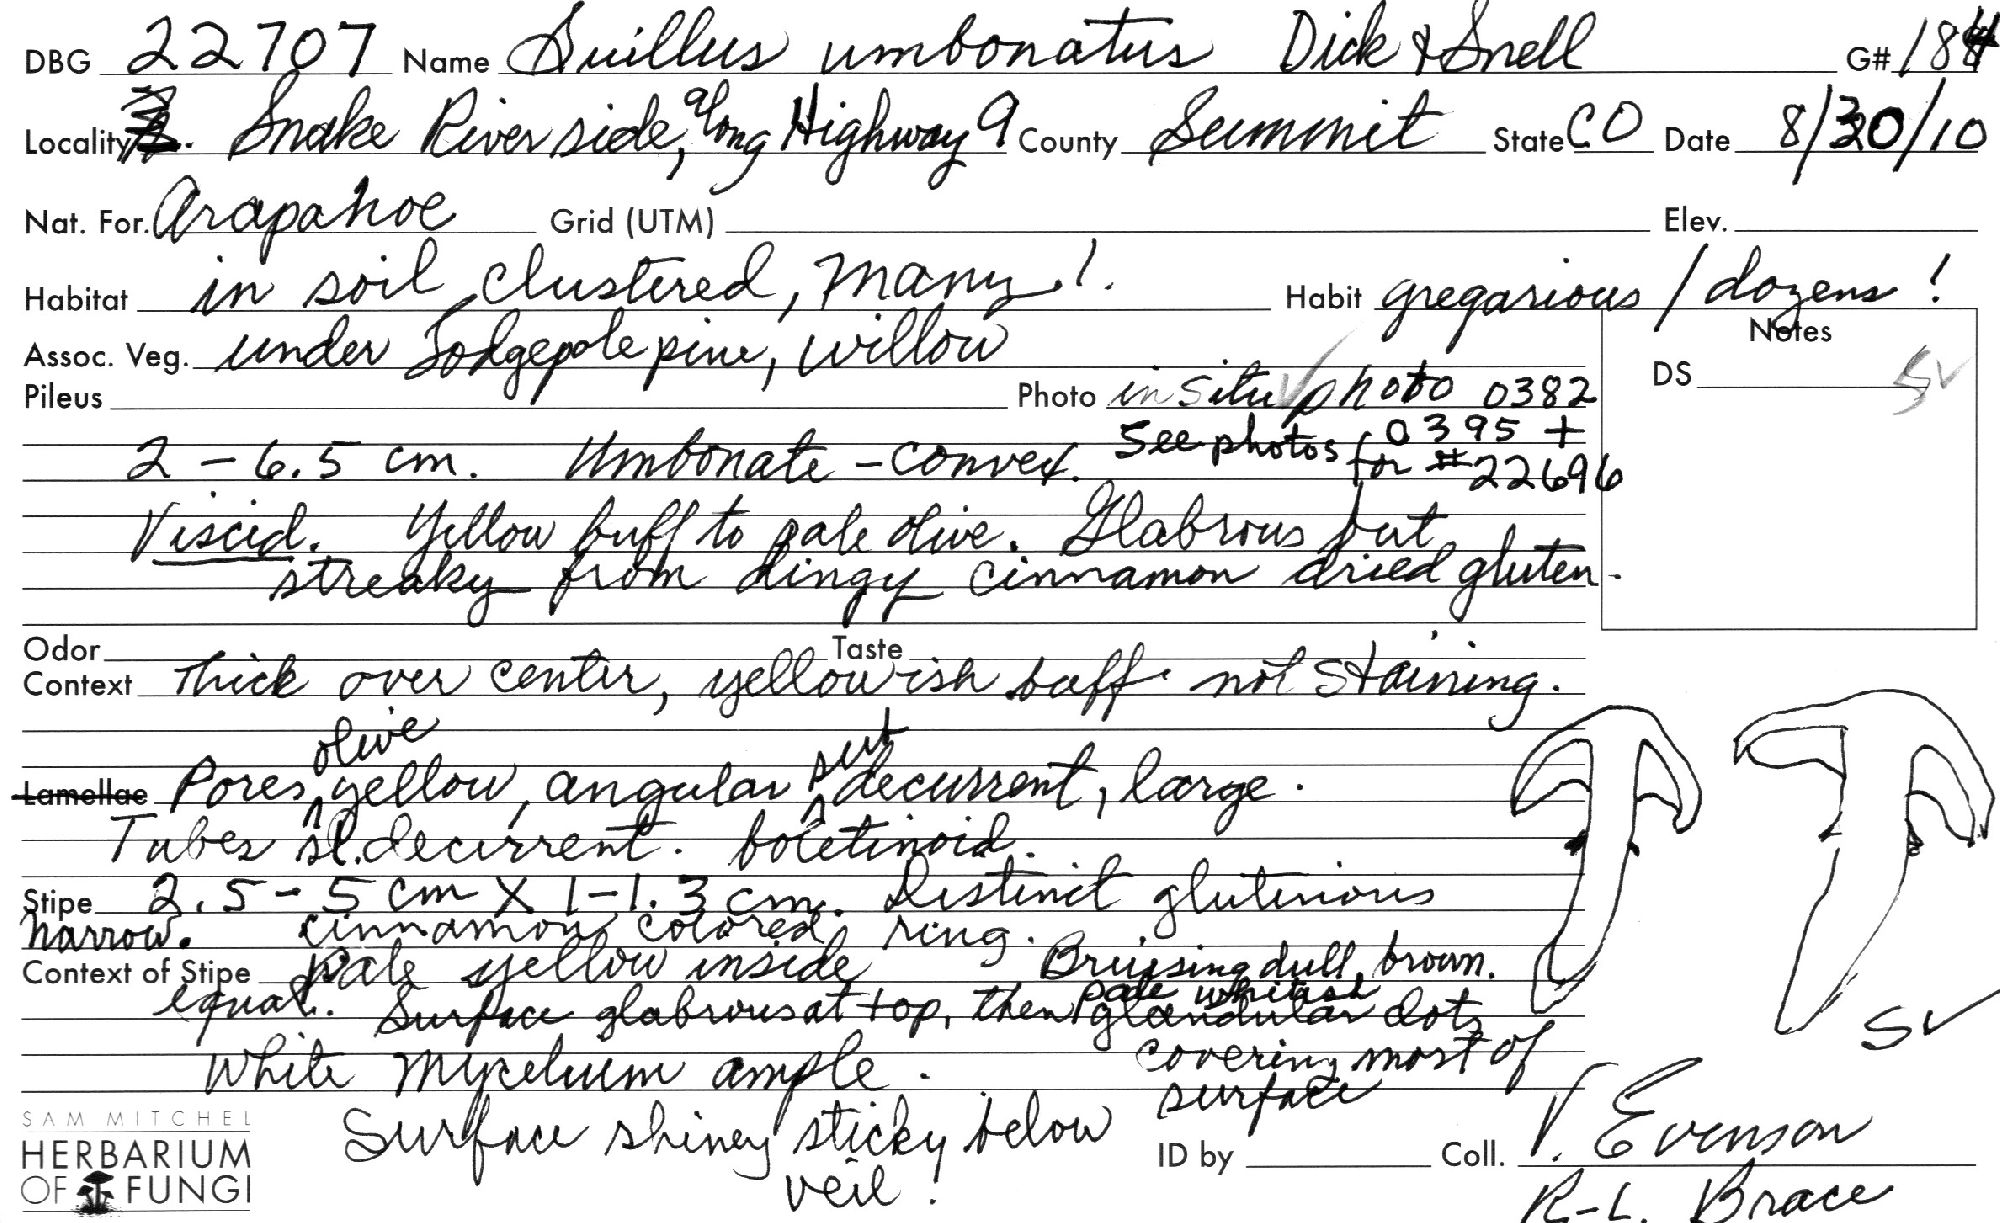 DBG 22707 Name Suillus umbonatus Dick & Snell G# 184
Locality Snake Riverside, along Highway 9 County Summit State CO Date 8/30/10
Nat. For. Arapahoe Grid (UTM) Elev.
Habitat in soil, clustered, many! Habit gregarious / dozens!
Assoc. Veg. under Lodgepole pine, willow
Notes
DS SV
Pileus Photo in situ photo 0382
See photos 0395 +
for # 22696
2 - 6.5 cm. Umbonate - convex.
Viscid. Yellow buff to pale olive. Glabrous but
streaky from dingy cinnamon dried gluten.
Odor Taste
Context Thick over center, yellowish buff. not staining.
Lamellae Pores olive yellow, angular sub decurrent, large.
Tubes sl. decurrent. boletinoid.
Stipe 2.5 - 5 cm X 1-1.3 cm. Distinct glutinous
narrow. cinnamon colored ring.
Context of Stipe pale yellow inside Bruising dull brown.
equal. Surface glabrous at top, then pale whitish glandular dots
covering most of
surface
White mycelium ample.
Surface shiney sticky below
veil!
SV
SAM MITCHEL
HERBARIUM
OF FUNGI
ID by Coll. V. Evenson
R-L. Brace